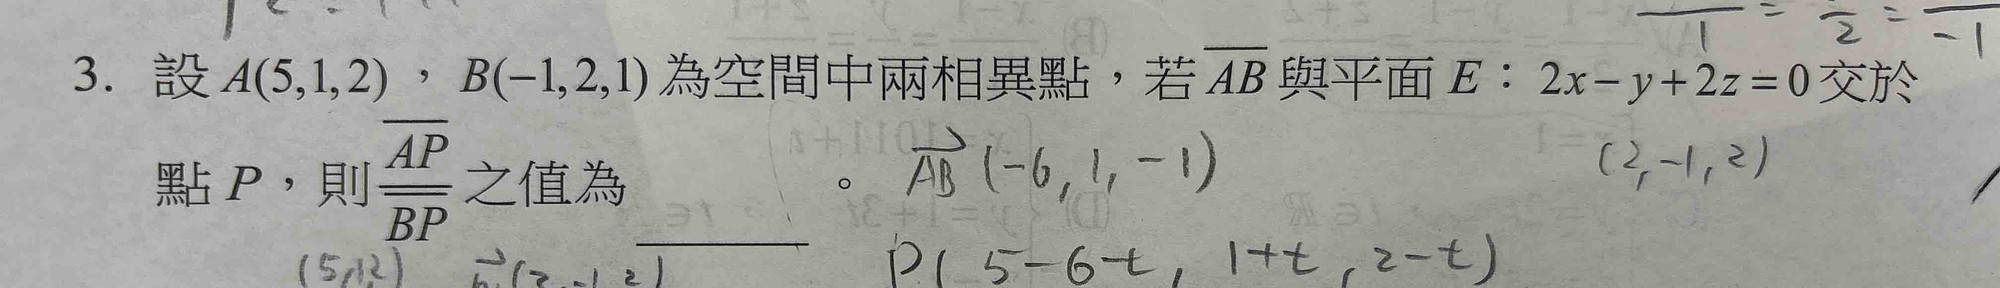 1 = 2 = -1
3. 設 A(5,1,2) , B(-1,2,1) 為空間中兩相異點,若 AB 與平面 E:2x-y+2z=0 交於
點 P,則 AP/BP 之值為 ______ 。 AB (-6, 1, -1) (2, -1, 2)
P( 5-6t, 1+t, 2-t)